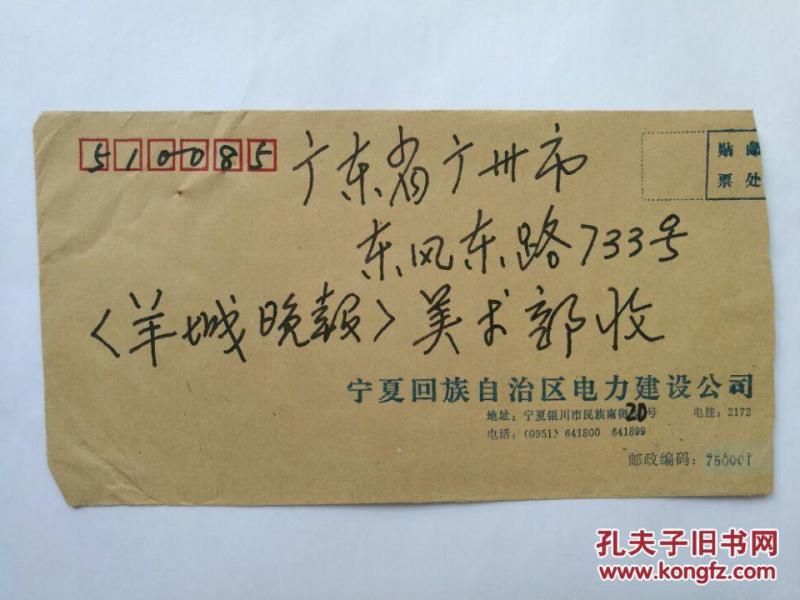 510085
广东省广州市
贴邮
票处
东风东路733号
《羊城晚报》美术部收
宁夏回族自治区电力建设公司
地址：宁夏银川市民族南街20号 电挂：2172
电话：(0951) 641800 641899
邮政编码：750001
孔夫子旧书网
www.kongfz.com